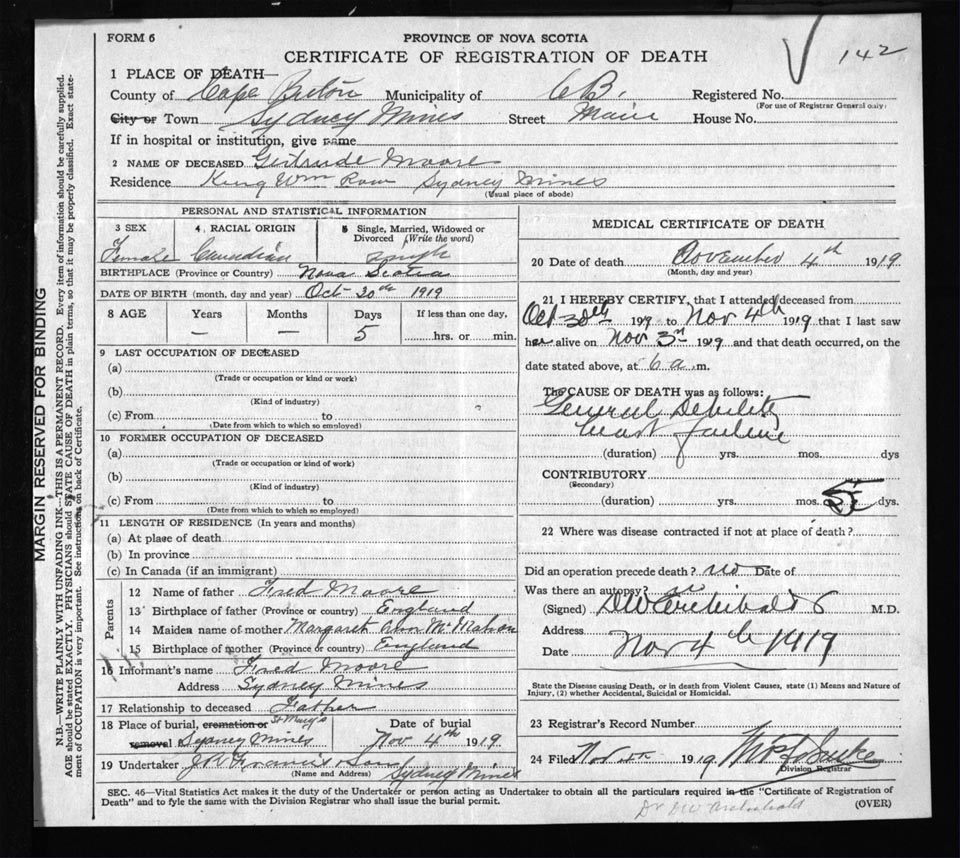 FORM 6
PROVINCE OF NOVA SCOTIA
142
CERTIFICATE OF REGISTRATION OF DEATH
1 PLACE OF DEATH—
County of Cape Breton Municipality of C B. Registered No.
(For use of Registrar General only)
City or Town Sydney Mines Street Main House No.
If in hospital or institution, give name
2 NAME OF DECEASED Gertrude Moore
Residence King Wm Row Sydney Mines
(Usual place of abode)
PERSONAL AND STATISTICAL INFORMATION
3 SEX 4. RACIAL ORIGIN 5 Single, Married, Widowed or Divorced (Write the word)
Female Canadian Single
BIRTHPLACE (Province or Country) Nova Scotia
DATE OF BIRTH (month, day and year) Oct 30th 1919
8 AGE Years Months Days If less than one day,
— — 5 hrs. or min.
9 LAST OCCUPATION OF DECEASED
(a)
(Trade or occupation or kind or work)
(b)
(Kind of industry)
(c) From to
(Date from which to which so employed)
10 FORMER OCCUPATION OF DECEASED
(a)
(Trade or occupation or kind of work)
(b)
(Kind of industry)
(c) From to
(Date from which to which so employed)
11 LENGTH OF RESIDENCE (In years and months)
(a) At place of death
(b) In province
(c) In Canada (if an immigrant)
Parents
12 Name of father Fred Moore
13 Birthplace of father (Province or country) England
14 Maiden name of mother Margaret Ann McMahon
15 Birthplace of mother (Province or country) England
16 Informant's name Fred Moore
Address Sydney Mines
17 Relationship to deceased Father
18 Place of burial, cremation or removal St Mary's Sydney Mines
Date of burial Nov 4th 1919
19 Undertaker Francis Sydney Mines
(Name and Address)
MEDICAL CERTIFICATE OF DEATH
20 Date of death November 4th 1919
(Month, day and year)
21 I HEREBY CERTIFY, that I attended deceased from
Oct 30th 1919 to Nov 4th 1919 that I last saw
her alive on Nov 3rd 1919 and that death occurred, on the
date stated above, at 6 a.m.
The CAUSE OF DEATH was as follows:
General Debility
Heart failure
(duration) yrs. mos. dys
CONTRIBUTORY
(Secondary)
(duration) yrs. mos. dys.
22 Where was disease contracted if not at place of death?
Did an operation precede death? no Date of
Was there an autopsy? no
(Signed) D W Archibald M.D.
Address
Date Nov 4th 1919
State the Disease causing Death, or in death from Violent Causes, state (1) Means and Nature of
Injury, (2) whether Accidental, Suicidal or Homicidal.
23 Registrar's Record Number
24 Filed Nov 1919
Division Registrar
SEC. 46—Vital Statistics Act makes it the duty of the Undertaker or person acting as Undertaker to obtain all the particulars required in the "Certificate of Registration of
Death" and to fyle the same with the Division Registrar who shall issue the burial permit.
(OVER)
Dr D W Archibald
MARGIN RESERVED FOR BINDING
N.B.—WRITE PLAINLY WITH UNFADING INK—THIS IS A PERMANENT RECORD. Every item of information should be carefully supplied.
AGE should be stated EXACTLY. PHYSICIANS should STATE CAUSE OF DEATH in plain terms, so that it may be properly classified. Exact state-
ment of OCCUPATION is very important. See instructions on back of Certificate.